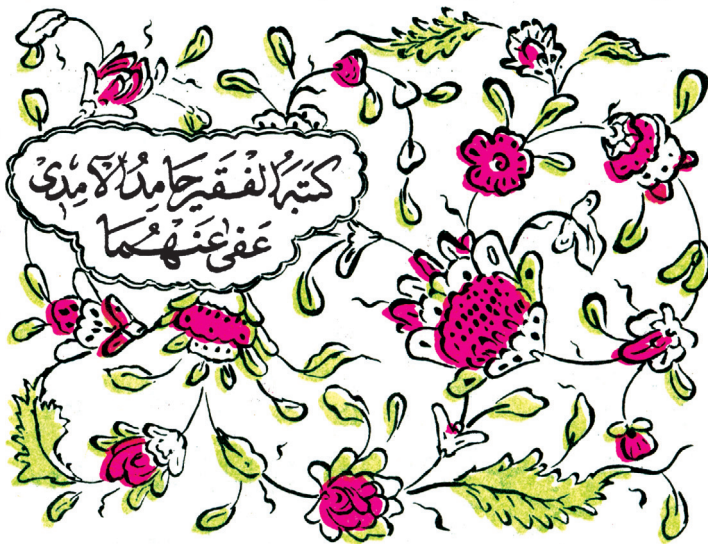 كَتَبَهُ الْفَقِيرُ حَامِدُ الْآمِدِىْ
عَفَىٰ عَنْهُمَا